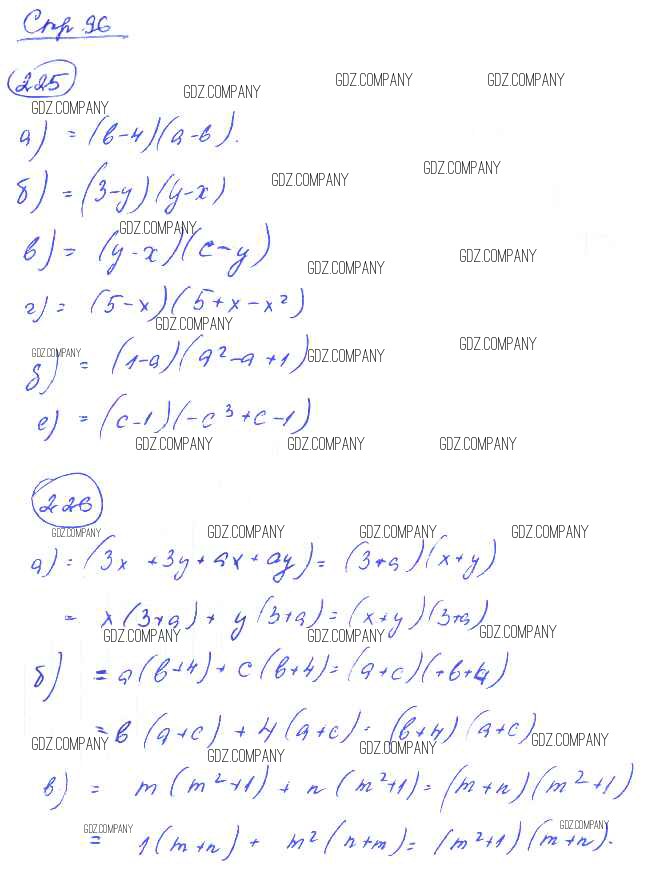 Стр. 96
225
GDZ.COMPANY GDZ.COMPANY GDZ.COMPANY GDZ.COMPANY
а) = (в-4)(а-в).
б) = (3-y)(y-x)
GDZ.COMPANY GDZ.COMPANY
GDZ.COMPANY
в) = (y-x)(c-y)
GDZ.COMPANY GDZ.COMPANY
г) = (5-x)(5+x-x²)
GDZ.COMPANY
GDZ.COMPANY GDZ.COMPANY GDZ.COMPANY
д) = (1-a)(a²-a+1)
е) = (c-1)(-c³+c-1)
GDZ.COMPANY GDZ.COMPANY GDZ.COMPANY
226
GDZ.COMPANY GDZ.COMPANY GDZ.COMPANY GDZ.COMPANY
а) = (3x+3y+ax+ay) = (3+a)(x+y)
= x(3+a) + y(3+a) = (x+y)(3+a)
GDZ.COMPANY GDZ.COMPANY GDZ.COMPANY
б) = a(в+4) + c(в+4) = (a+c)(+в+4)
= в(a+c) + 4(a+c) = (в+4)(a+c)
GDZ.COMPANY GDZ.COMPANY GDZ.COMPANY GDZ.COMPANY
в) = m(m²+1) + n(m²+1) = (m+n)(m²+1)
GDZ.COMPANY GDZ.COMPANY
= 1(m+n) + m²(n+m) = (m²+1)(m+n).